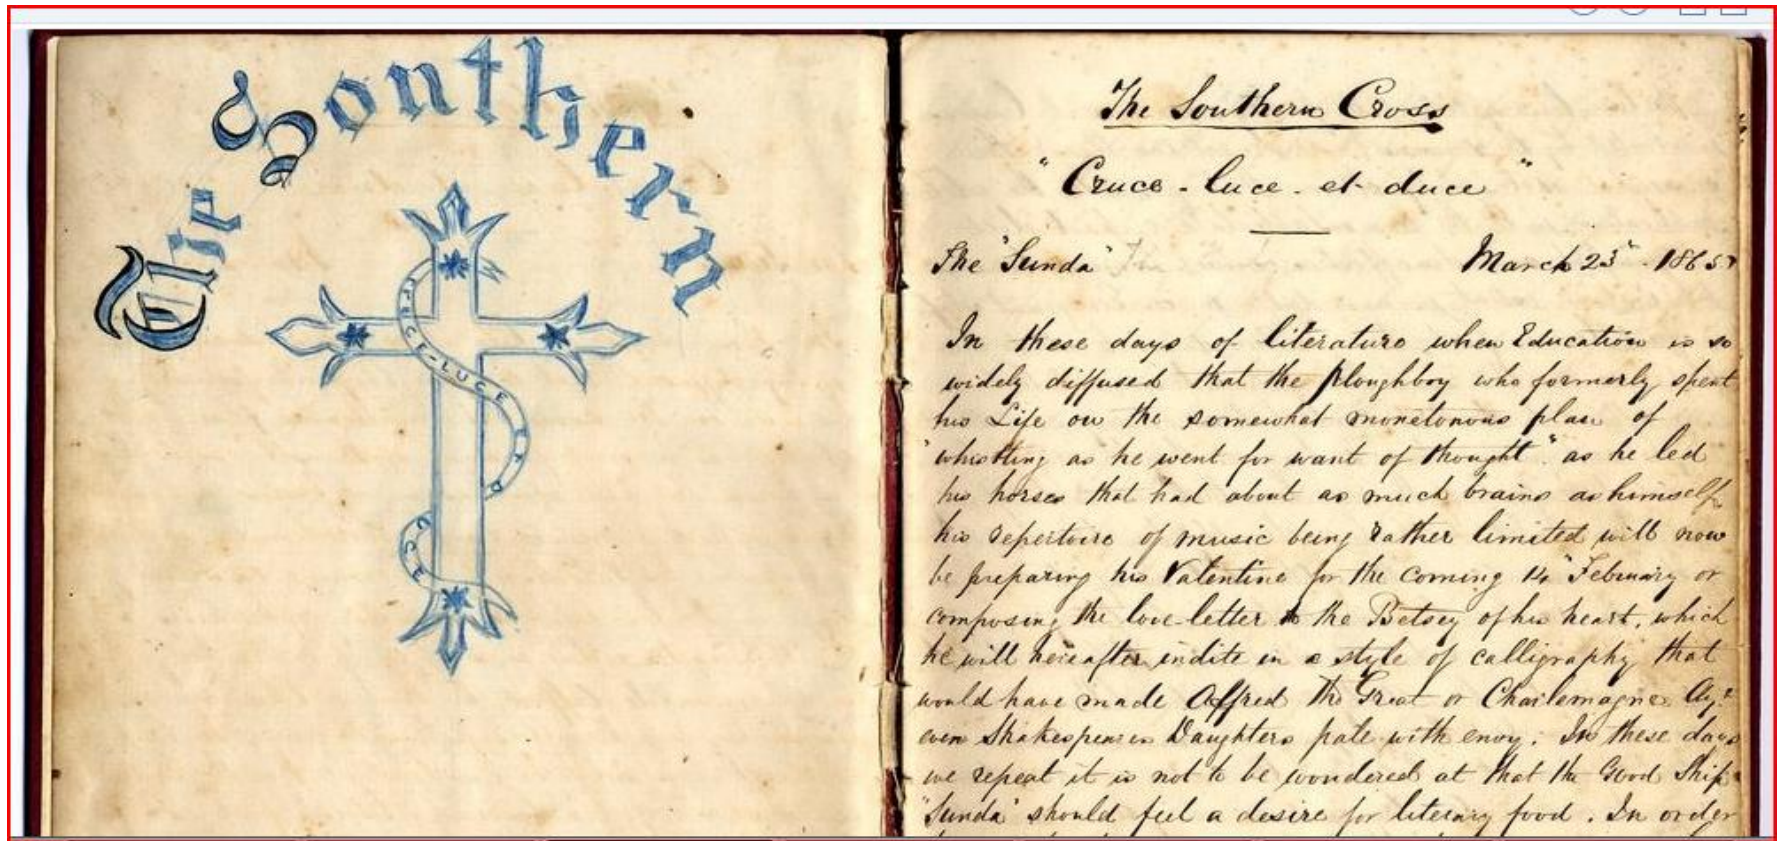 The Southern
CRUCE-LUCE ET D
UCE
The Southern Cross
"Cruce - luce - et - duce"
The "Sunda" March 23rd - 1865
In these days of literature when Education is so
widely diffused that the ploughboy who formerly spent
his Life on the somewhat monotonous plan of
"whistling as he went for want of thought" as he led
his horses that had about as much brains as himself,
his repertoire of music being rather limited will now
be preparing his Valentine for the coming 14th February or
composing the love-letter to the Betsey of his heart, which
he will hereafter indite in a style of calligraphy that
would have made Alfred the Great or Charlemagne Ay!
even Shakespeares Daughters pale with envy. In these days
we repeat it is not to be wondered at that the Good Ship
"Sunda" should feel a desire for literary food. In order